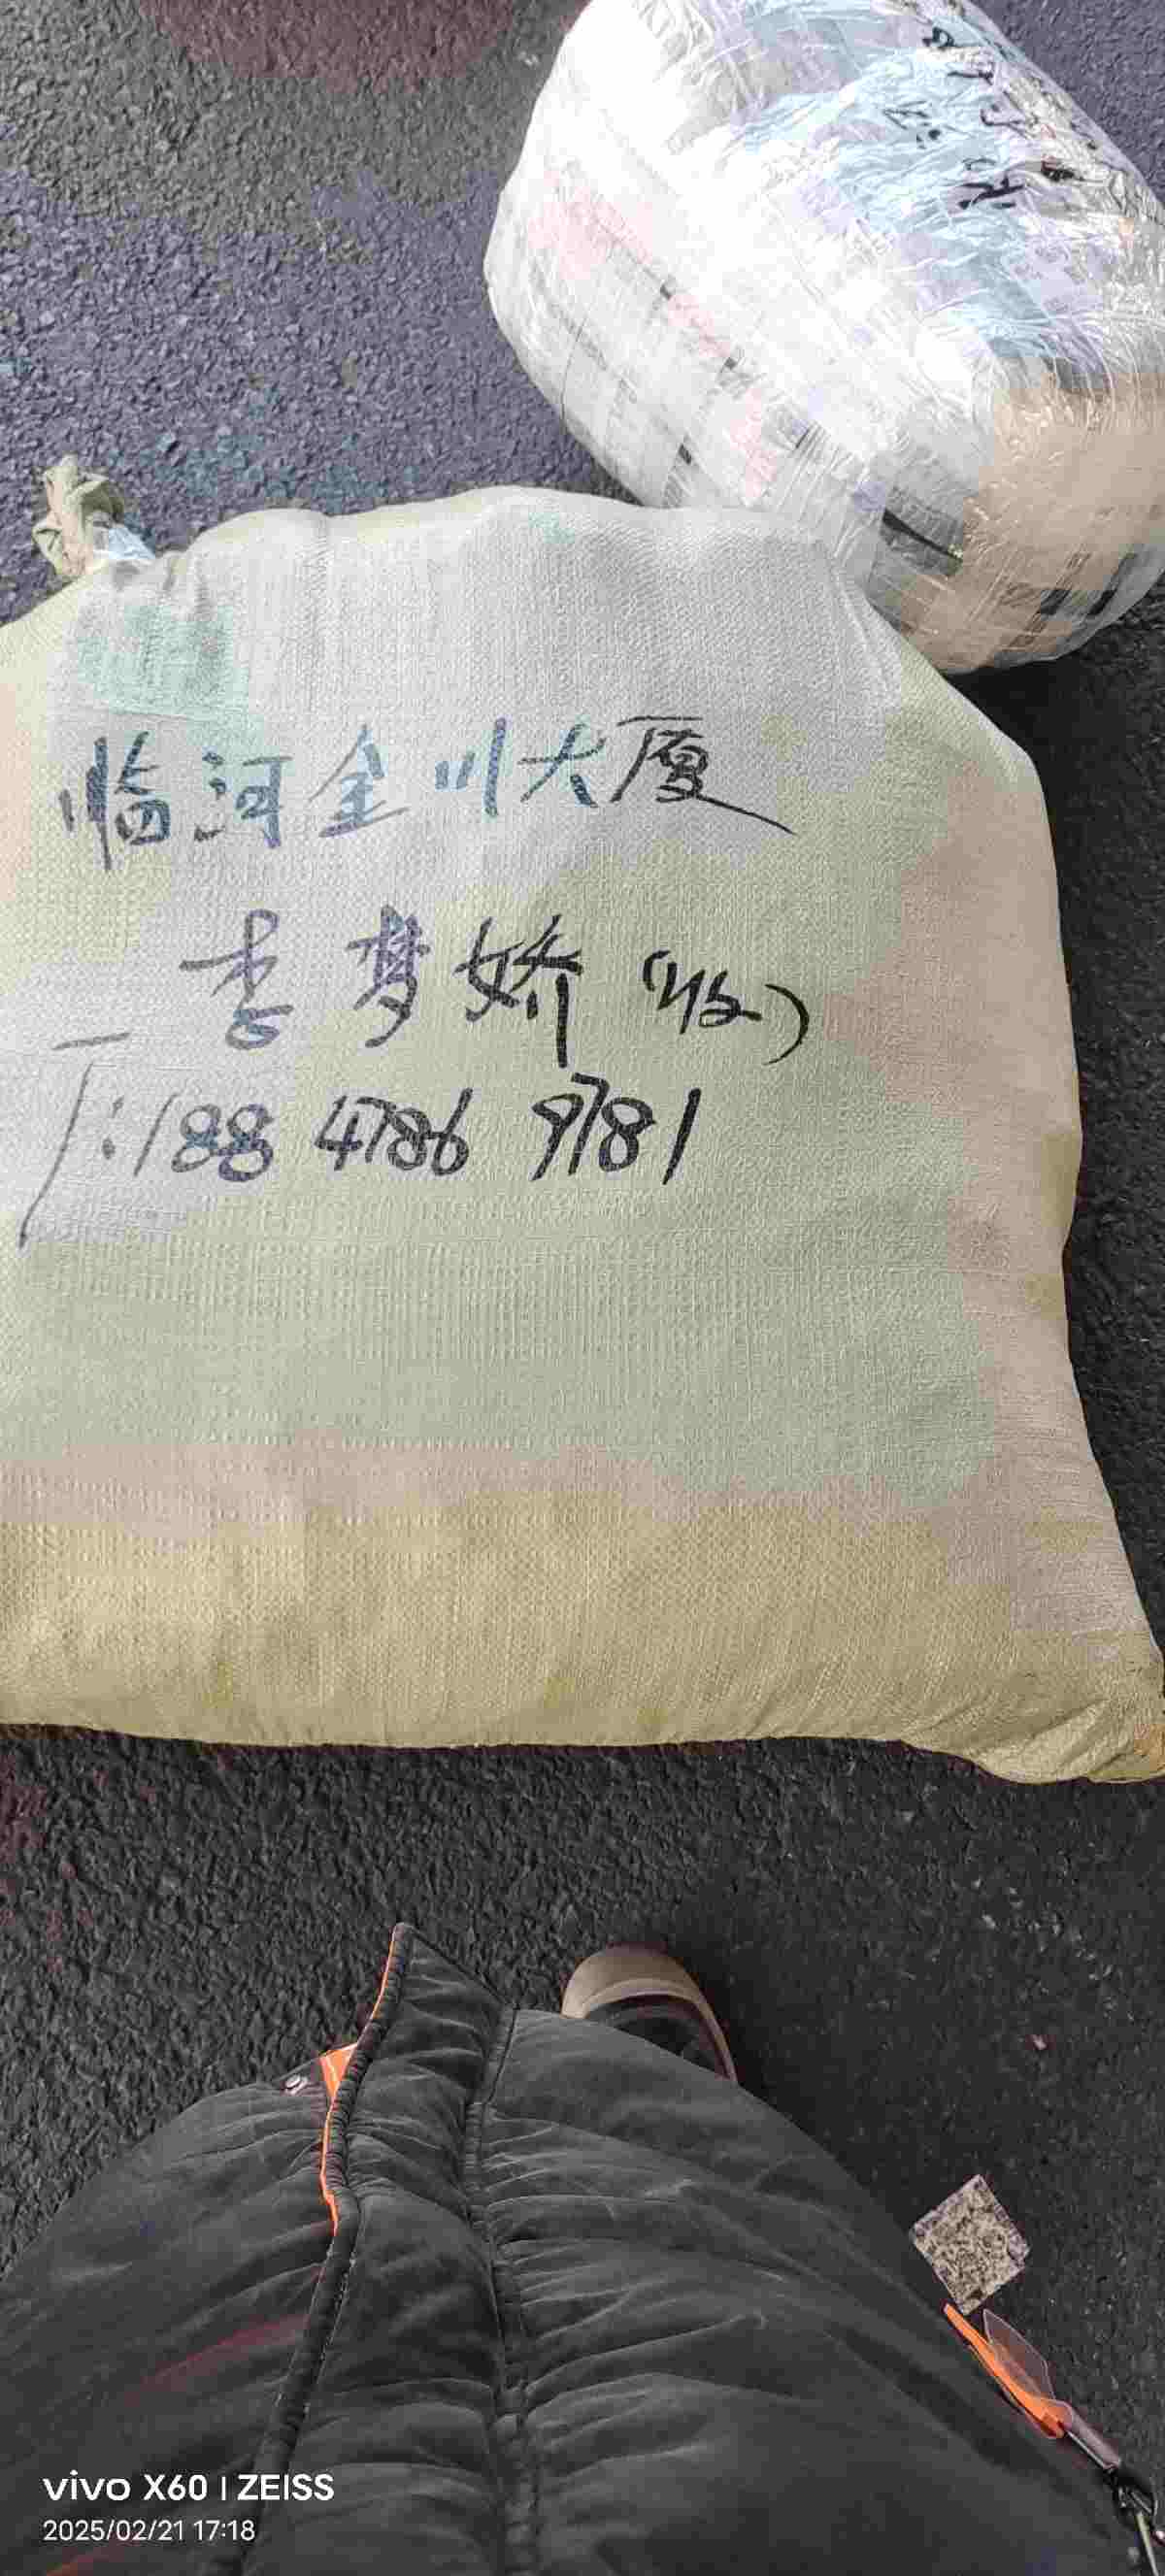 临河金川大厦
李梦娇（收）
T:188 4786 9781
vivo X60 | ZEISS
2025/02/21 17:18